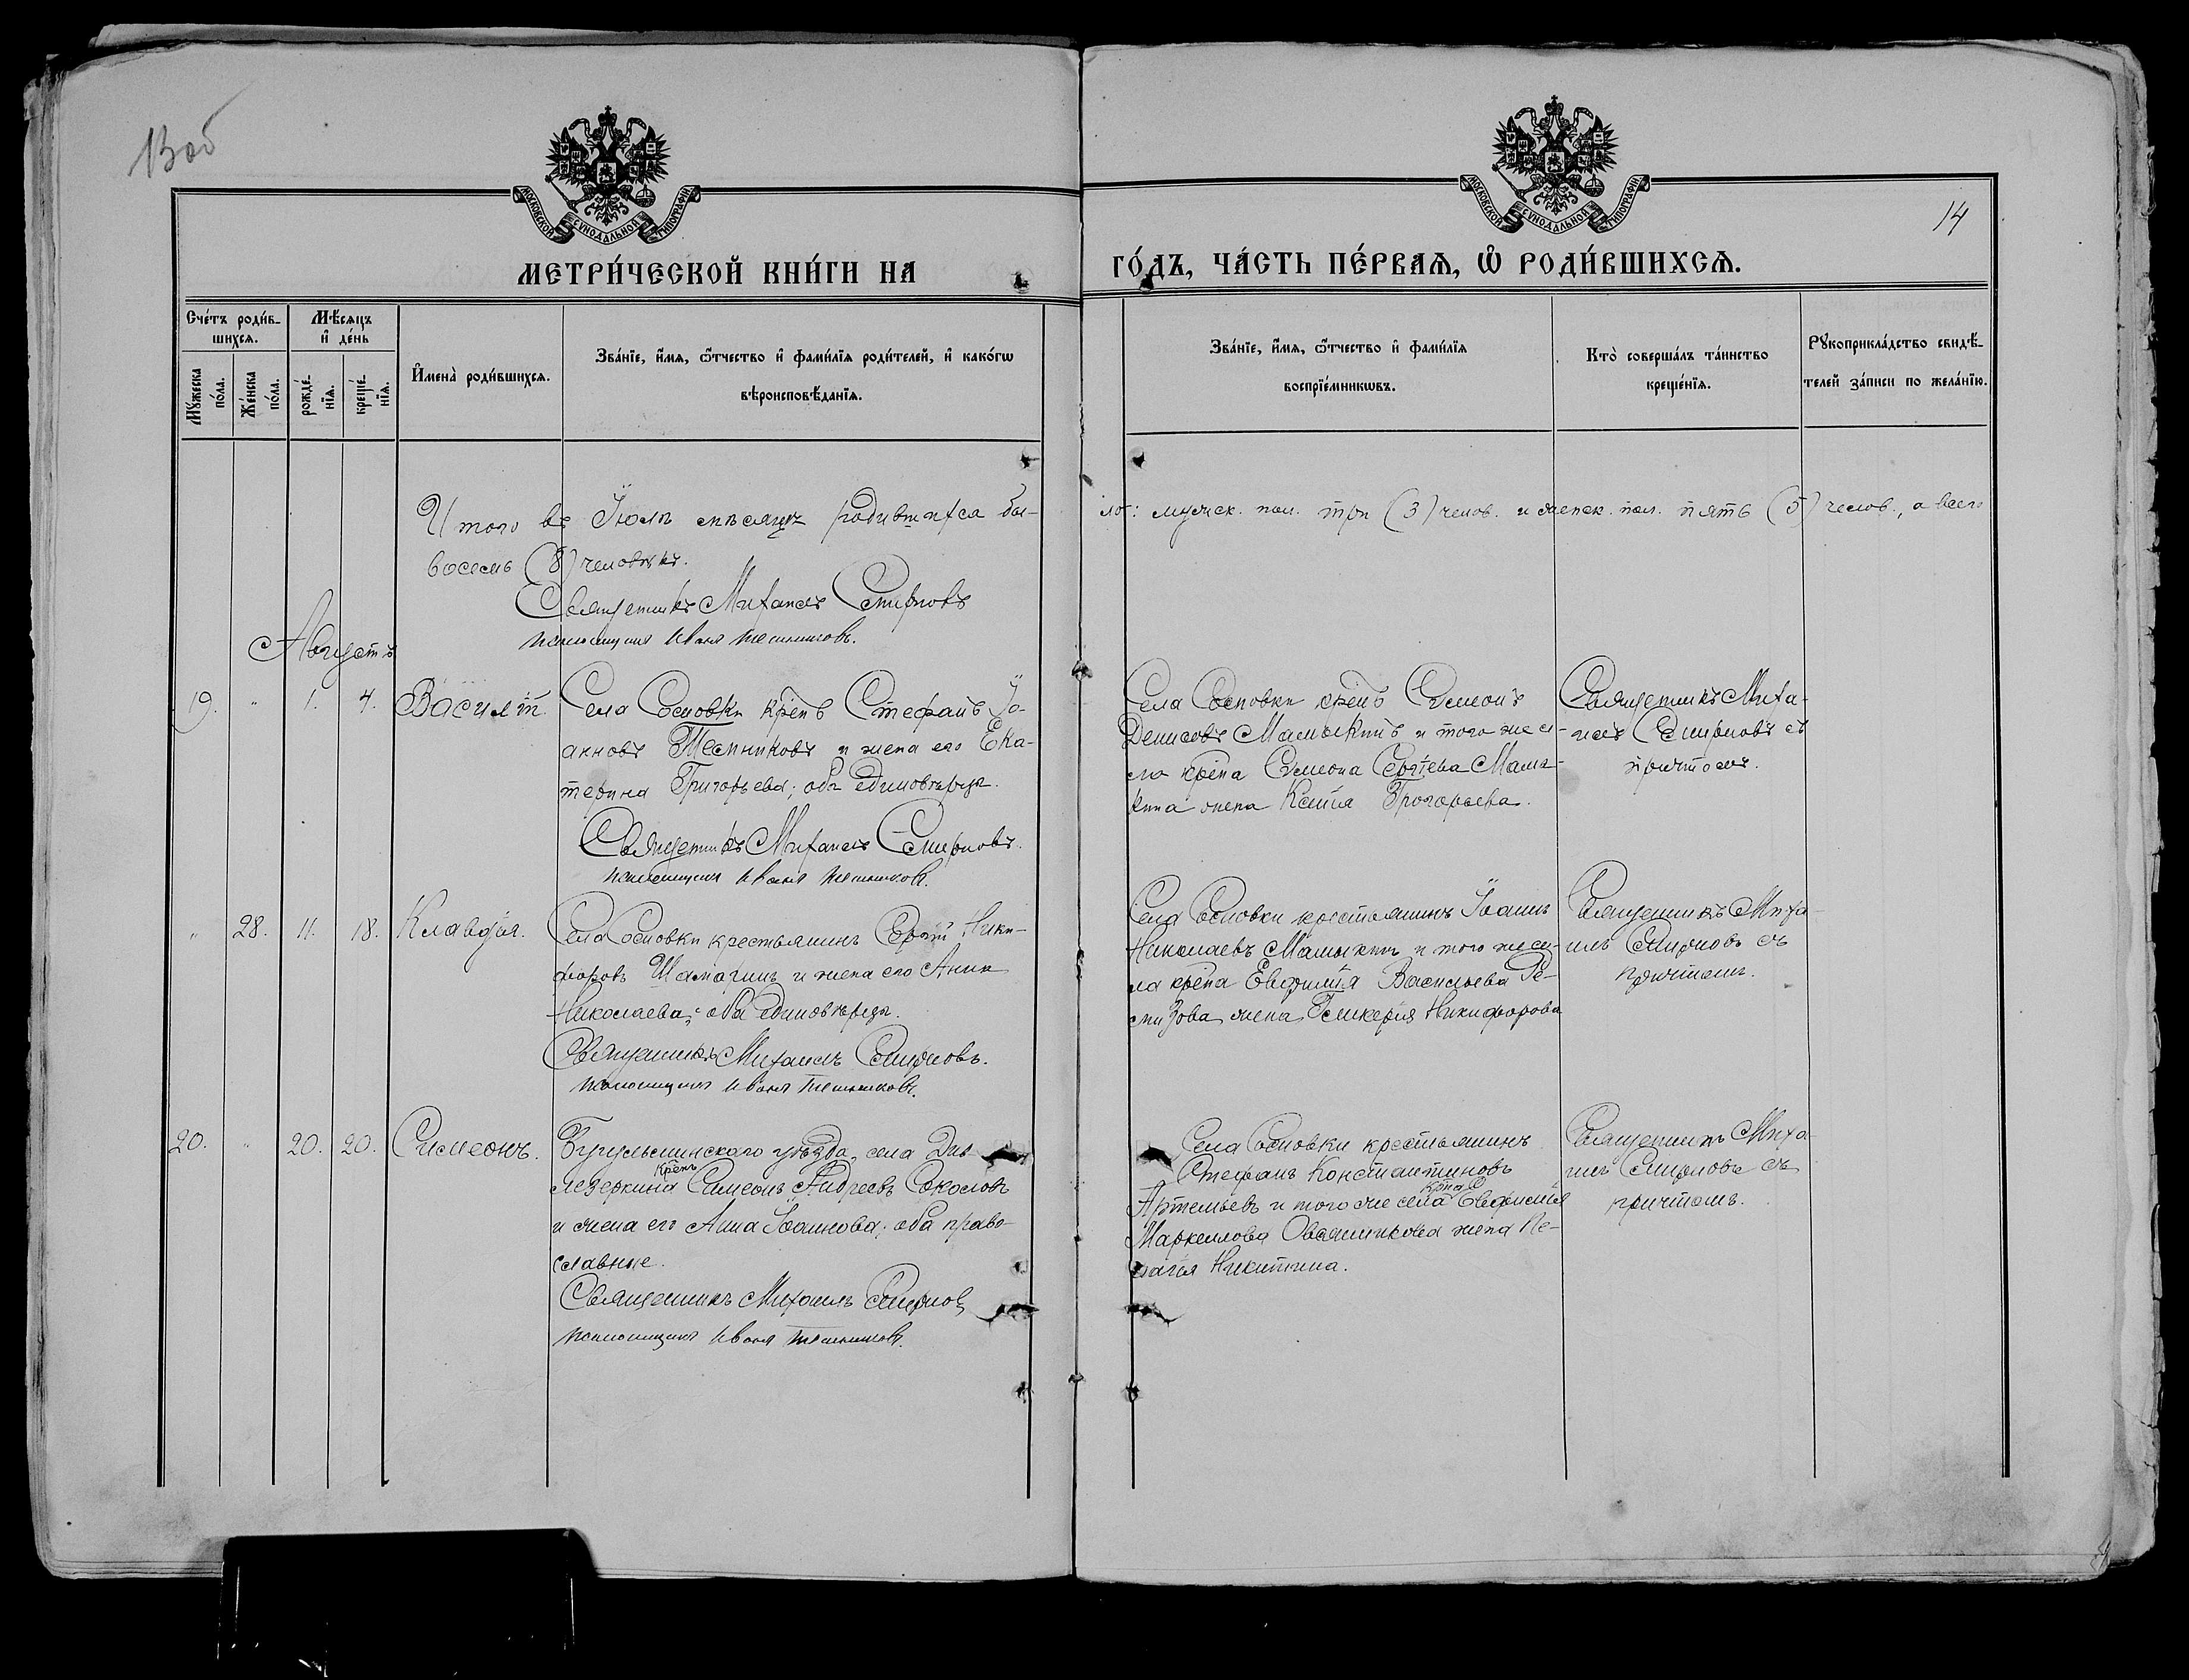 13 об
14
МОСКОВСКОЙ СѴНОДАЛЬНОЙ ТИПОГРАФІИ
МОСКОВСКОЙ СѴНОДАЛЬНОЙ ТИПОГРАФІИ
МЕТРИ́ЧЕСКОЙ КНИ́ГИ НА ГО́ДЪ, ЧА́СТЬ ПЕ́РВАѦ, Ѽ РОДИ́ВШИХСѦ.
Сче́тъ роди́в-
шихсѧ.
Мꙋ́жеска
по́ла.
Же́нска
по́ла.
Мѣ́сѧцъ
и҆ де́нь
рожде́-
нїѧ.
креще́-
нїѧ.
И҆мена̀ роди́вшихсѧ.
Зва́нїе, и҆́мѧ, ѻ҆́тчество и҆ фами́лїѧ роди́телей, и҆ како́гѡ
вѣроисповѣ́данїѧ.
Зва́нїе, и҆́мѧ, ѻ҆́тчество и҆ фами́лїѧ
воспрїе́мникѡвъ.
Кто̀ соверша́лъ та́инство
креще́нїѧ.
Рꙋкоприкла́дство свидѣ́-
телей за́писи по жела́нїю.
Итого въ Іюлѣ мѣсяцѣ родившихся бы-
ло: мужск. пол. три (3) челов. и женск. пол. пять (5) челов., а всего
восемь (8) человѣкъ.
Священникъ Михаилъ Смирновъ
Иванъ
Августъ
19. " 1. 4. Василій.
Села Сосновки крѣнъ Стефанъ Іо-
анновъ Тесниковъ и жена его Ека-
терина Григорьева; оба единовѣрцы.
Священникъ Михаилъ Смирновъ.
Иванъ
Села Сосновки крѣнъ Симеонъ
Денисовъ Мамыкинъ и того же се-
ла крѣна Симеона Сергѣева Мамы-
кина жена Ксенія Григорьева.
Священникъ Миха-
илъ Смирновъ съ
причтомъ.
" 28. 11. 18. Клавдія.
Села Сосновки крестьянинъ Сергій Ники-
форовъ Шамаринъ и жена его Анна
Николаева; оба единовѣрцы.
Священникъ Михаилъ Смирновъ.
Иванъ
Села Сосновки крестьянинъ Іоаннъ
Николаевъ Мамыкинъ и того же се-
ла крѣна Евфимія Васильева Ре-
мизова жена Гликерія Никифорова
Священникъ Миха-
илъ Смирновъ съ
причтомъ.
20. " 20. 20. Симеонъ.
Бугульминскаго уѣзда, села Дав-
крѣнъ
лезеркина Самсонъ Андреевъ Соколовъ
и жена его Анна Іоаннова; оба право-
славные.
Священникъ Михаилъ Смирновъ
Иванъ
Села Сосновки крестьянинъ
Стефанъ Константиновъ
крѣна
Артемьевъ и того же села Евфимія
Маркеллова Овсянникова жена Пе-
лагія Никитина.
Священникъ Миха-
илъ Смирновъ съ
причтомъ.